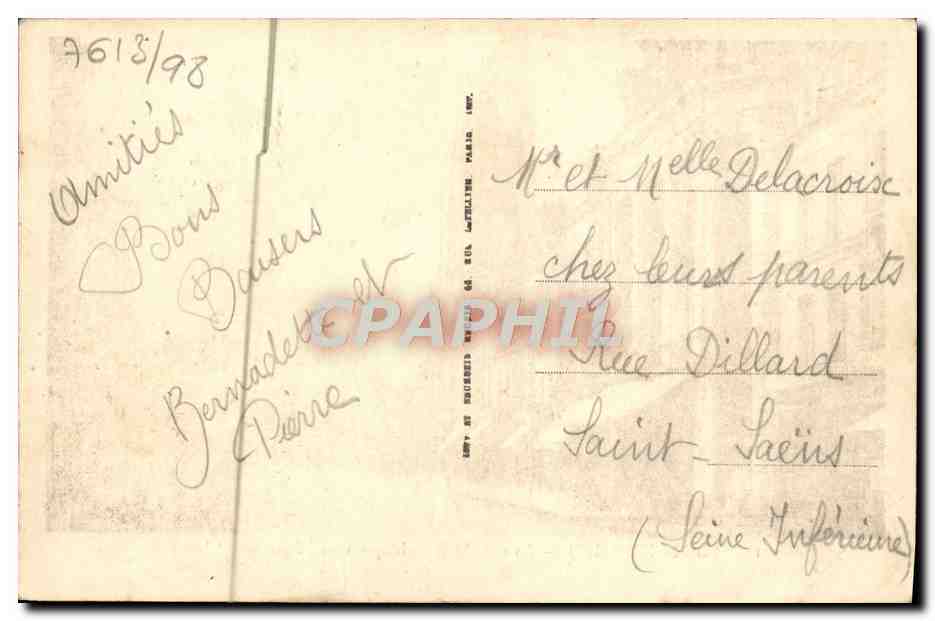 7613/98
Amitiés
Bons
Baisers
Bernadette et
Pierre
LEVY ET NEURDEIN REUNIS 44. RUE LETELLIER PARIS
CPAPHIL
Mr et Melle Delacroix
chez leurs parents
Rue Dillard
Saint-Saëns
(Seine Inférieure)